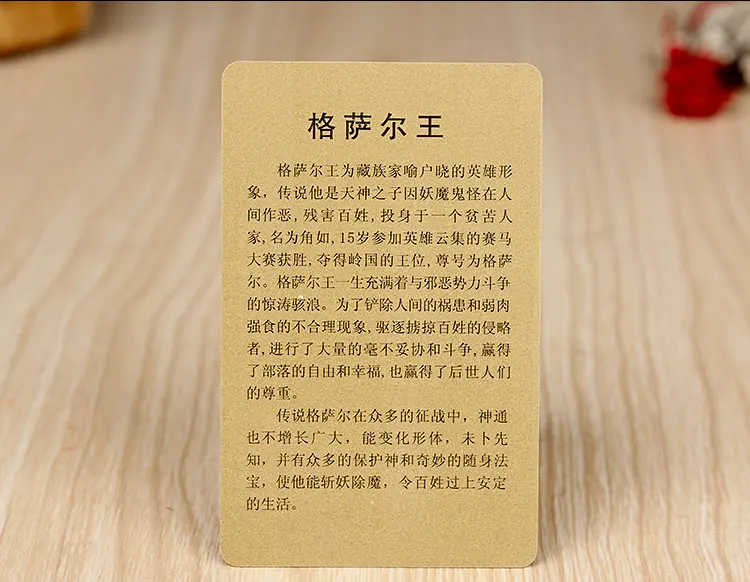 格萨尔王
格萨尔王为藏族家喻户晓的英雄形
象，传说他是天神之子因妖魔鬼怪在人
间作恶，残害百姓，投身于一个贫苦人
家，名为角如，15岁参加英雄云集的赛马
大赛获胜，夺得岭国的王位，尊号为格萨
尔。格萨尔王一生充满着与邪恶势力斗争
的惊涛骇浪。为了铲除人间的祸患和弱肉
强食的不合理现象，驱逐掳掠百姓的侵略
者，进行了大量的毫不妥协和斗争，赢得
了部落的自由和幸福，也赢得了后世人们
的尊重。
传说格萨尔在众多的征战中，神通
也不增长广大，能变化形体，未卜先
知，并有众多的保护神和奇妙的随身法
宝，使他能斩妖除魔，令百姓过上安定
的生活。